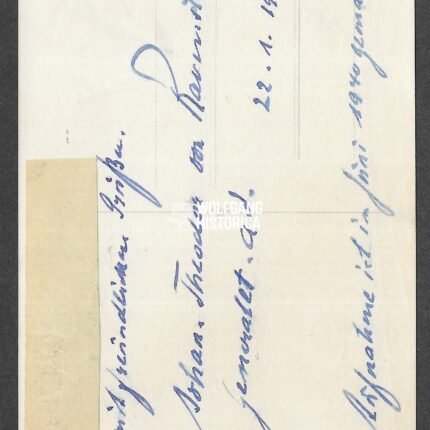 mit freundlichen Grüßen.
Johan-Theodor von
generallt. a.D.
22.1.19
Aufnahme ist im Juni 1940 gema
WOLFGANG
HISTORICA